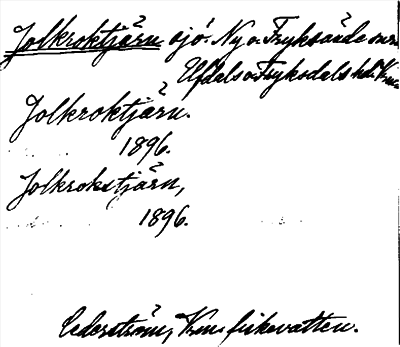 Jolkroktjärn sjö. Ny o. Fryksände snr
Elfdals o. Fryksdals hd. Vrm
Jolkroktjärn.
1896.
Jolkrokstjärn,
1896.
Cederström, Vrm. fiskevatten.